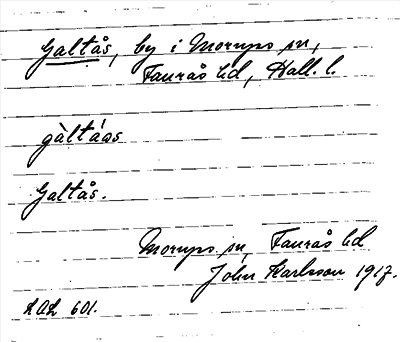 Galtås, by i Morups sn,
Faurås hd, Hall. l.
gàltáas
Galtås.
Morups sn, Faurås hd
John Karlsson 1917.
601.